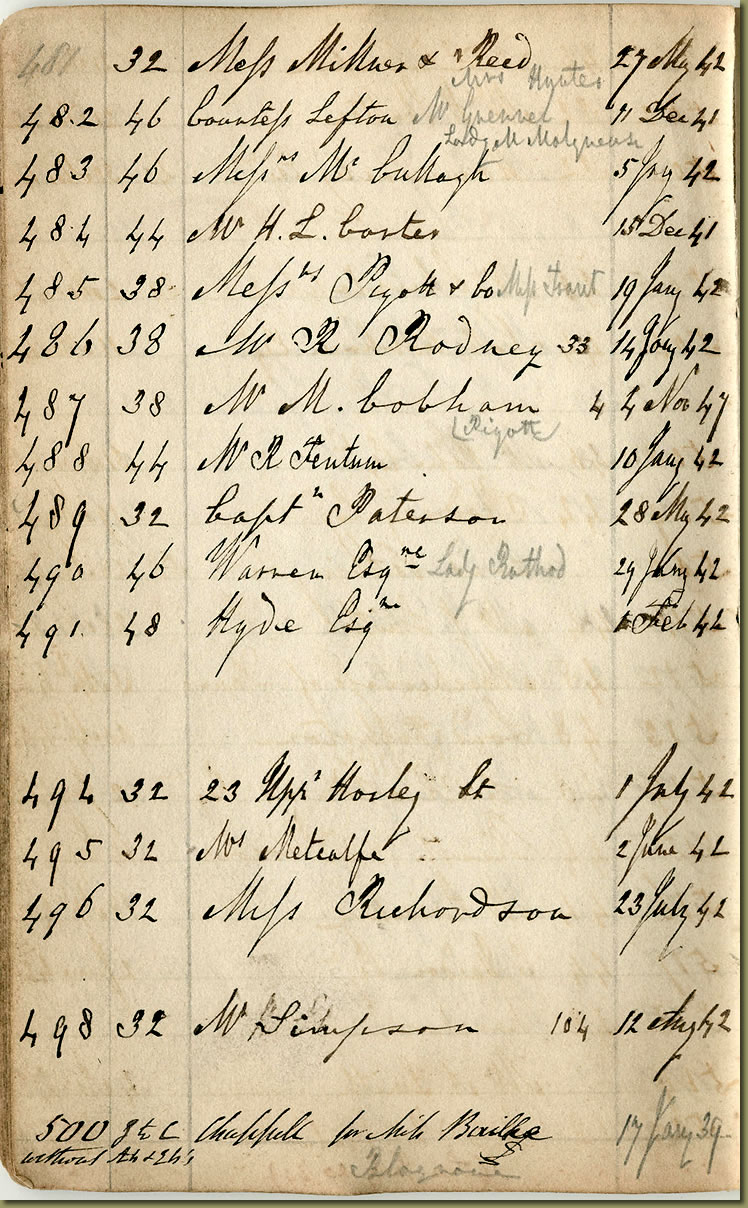 481 32 Mess Millner & Reed 27 My 42
Mrs Hunter
482 46 Countess Sefton Mr Grennel 11 Dec 41
Lady M Molyneux
483 46 Messrs Mc Cullagh 5 Jay 42
484 44 Mr H. L. Carter 15 Dec 41
485 38 Messrs Pigott & Co Miss Trant 19 Jany 42
486 38 Mr R Rodney 33 14 Jany 42
487 38 Mr M. Cobham 4 4 Nov 47
Pigott
488 44 Mr R Fentum 10 Jany 42
489 32 Captn Paterson 28 My 42
490 46 Warren Esqre Lady 29 Jany 42
491 48 Hyde Esqre Feb 42
494 32 23 Uppr Harley St 1 July 42
495 32 Mrs Metcalfe 2 June 42
496 32 Miss Richardson 23 July 42
498 32 Mr Simpson 104 12 Aug 42
500 Chappell for Miss Bailke 17 Jany 39
without